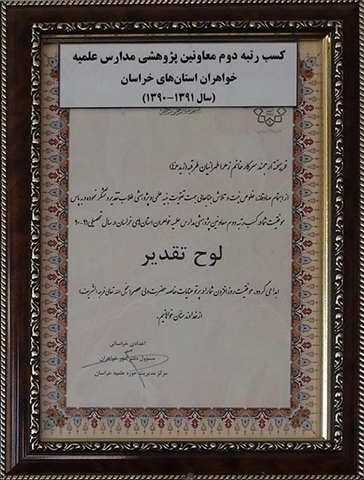 کسب رتبه دوم معاونین پژوهشی مدارس علمیه
خواهران استان‌های خراسان
(سال ۱۳۹۱-۱۳۹۰)
فرهیخته ارجمند سرکار خانم زهرا طهرانیان طرقبه (زید عزها)
از اهتمام صادقانه، خلوص نیت و تلاش جنابعالی جهت تقویت بنیه علمی و پژوهشی طلاب تقدیر و تشکر نموده و به پاس
موفقیت شما در کسب رتبه دوم معاونین پژوهشی مدارس علمیه خواهران استان‌های خراسان در سال تحصیلی ۹۱-۹۰
لوح تقدیر
اهدا می گردد. موفقیت روزافزون شما را در پرتو عنایات خاصه حضرت ولی عصر (عجل الله تعالی فرجه الشریف)
از خداوند منان خواهانیم.
اعدادی خراسانی
مسؤول دفتر امور خواهران
مرکز مدیریت حوزه علمیه خراسان